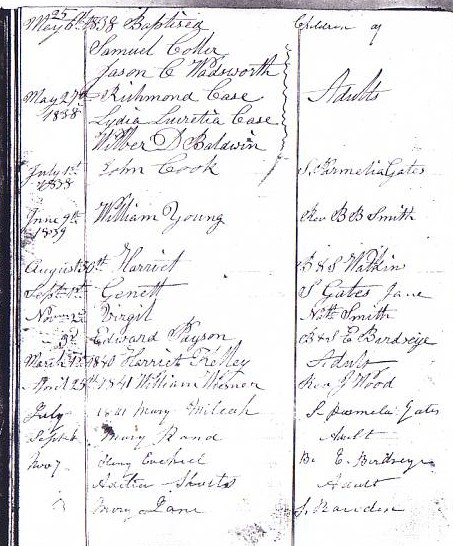 May 6th 1838 Baptised Children of
25
Samuel Coller
Jason C Wadsworth
May 27th Richmond Case Adults
1838 Lydia Lucretia Case
Wilber D Baldwin
July 1st John Cook S. Permelia Gates
1838
June 9th William Young Rev B B Smith
1839
August 30th Harriet B & S Watkin
Sept 1st Genett S Gates Jane
Nov 2d Virgil Nath Smith
3d Edward Payson B & S E Birdseye
March 1st 1840 Harriet Kelley Adult
April 25th 1841 William Rev J Wood
July 1841 Mary Milcah S. Pamela Gates
Sept 6 Mary Rand Adult
Nov 7 Ezekiel B. E. Birdseye
Adult
Mary Jane S.